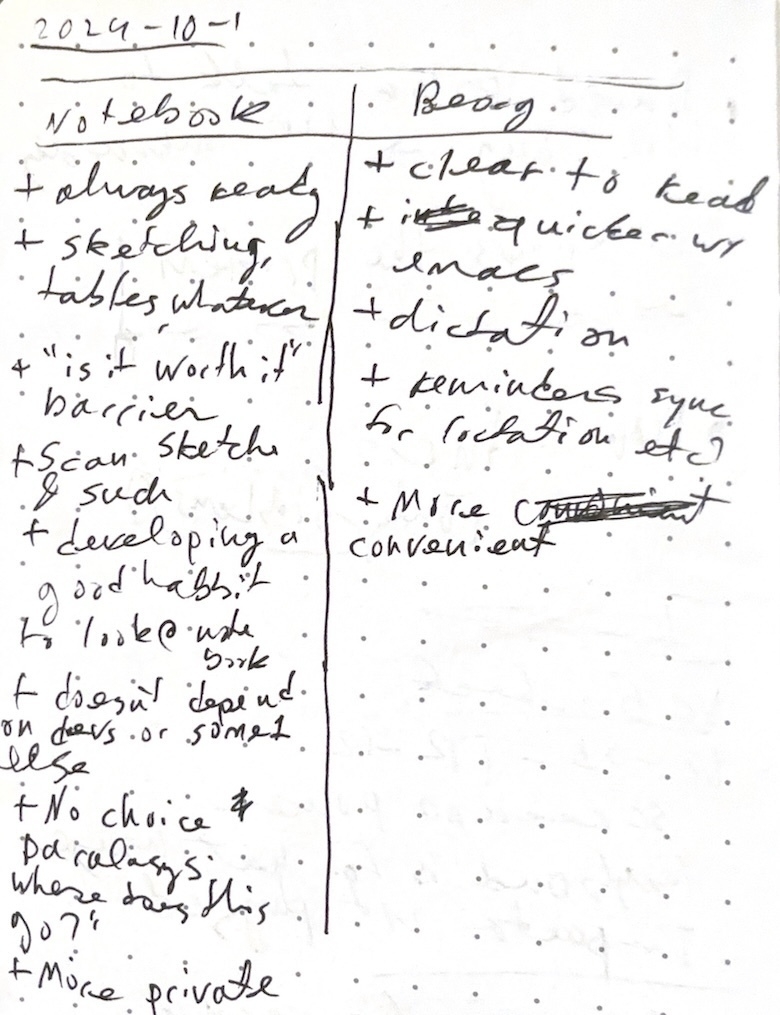 2024-10-1
Notebook
+ always ready
+ sketching,
tables, whatever
+ "is it worth it"
barrier
+ Scan sketche
& such
+ developing a
good habbit
to look @ note
book
+ doesn't depend
on devs or some1
else
+ No choice
paralasys.
where does this
go?"
+ More private
Beorg
+ clear to read
+ quicker w/
emacs
+ dictation
+ reminders sync
for location etc)
+ More
convenient